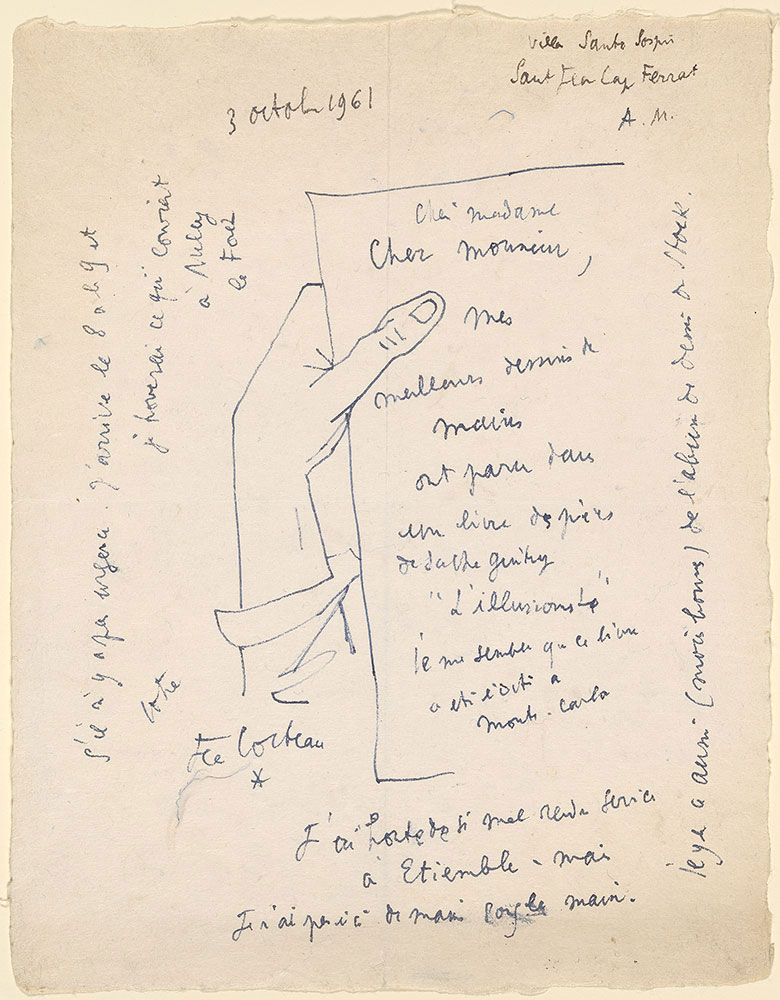 Villa Santo Sospir
Saint Jean Cap Ferrat
A. M.
3 octobre 1961
Chère madame
Cher monsieur,
mes
meilleurs dessins de
mains
ont paru dans
un livre de pièces
de Sacha Guitry
"L'illusioniste"
Il me semble que ce livre
a été édité à
Monte-Carlo
Il y a aussi (moins bons) de l'album de dessins de Stock.
J'ai honte de si mal rendre service
à Etiemble - mais
Je n'ai pas ici de mains la main.
S'il n'y a pas urgence. J'arrive le 8 ou le 9 et
je trouverai ce qui convient
à Milly
la Forêt
Jean Cocteau
*